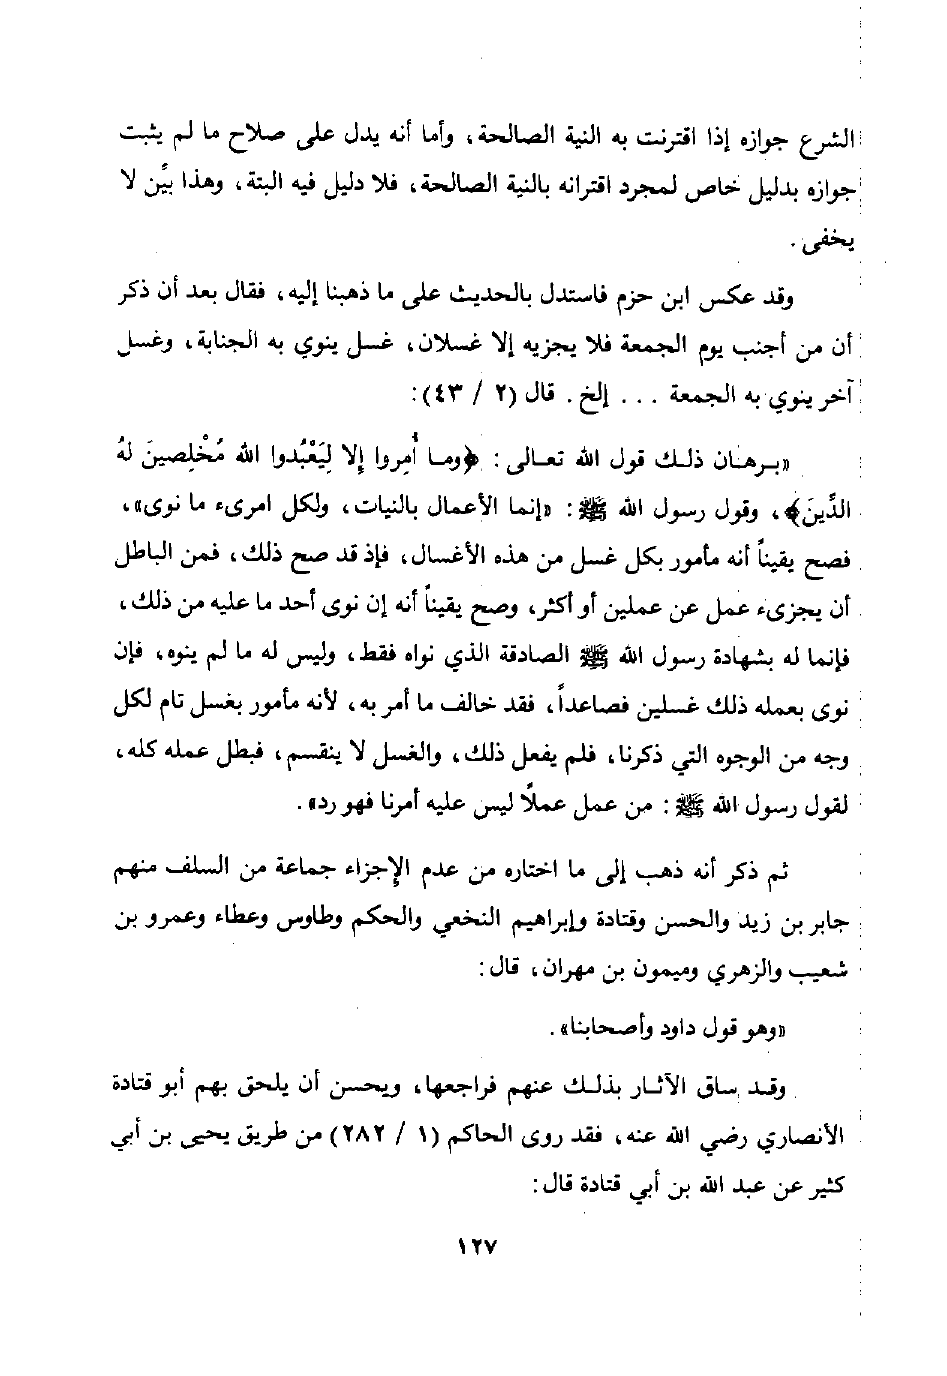 الشرع جوازه إذا اقترنت به النية الصالحة، وأما أنه يدل على صلاح ما لم يثبت
جوازه بدليل خاص لمجرد اقترانه بالنية الصالحة، فلا دليل فيه البتة، وهذا بيِّن لا
يخفى.
وقد عكس ابن حزم فاستدل بالحديث على ما ذهبنا إليه، فقال بعد أن ذكر
أن من أجنب يوم الجمعة فلا يجزيه إلا غسلان، غسل ينوي به الجنابة، وغسل
آخر ينوي به الجمعة ... إلخ. قال (٢ / ٤٣):
«برهان ذلك قول الله تعالى: ﴿وما أُمِروا إِلا لِيَعْبُدوا الله مُخْلِصينَ لهُ
الدِّينَ﴾، وقول رسول الله ﷺ: «إنما الأعمال بالنيات، ولكل امرىء ما نوى»،
فصح يقيناً أنه مأمور بكل غسل من هذه الأغسال، فإذ قد صح ذلك، فمن الباطل
أن يجزىء عمل عن عملين أو أكثر، وصح يقيناً أنه إن نوى أحد ما عليه من ذلك،
فإنما له بشهادة رسول الله ﷺ الصادقة الذي نواه فقط، وليس له ما لم ينوه، فإن
نوى بعمله ذلك غسلين فصاعداً، فقد خالف ما أمر به، لأنه مأمور بغسل تام لكل
وجه من الوجوه التي ذكرنا، فلم يفعل ذلك، والغسل لا ينقسم، فبطل عمله كله،
لقول رسول الله ﷺ: من عمل عملًا ليس عليه أمرنا فهو رد».
ثم ذكر أنه ذهب إلى ما اختاره من عدم الإجزاء جماعة من السلف منهم
جابر بن زيد والحسن وقتادة وإبراهيم النخعي والحكم وطاوس وعطاء وعمرو بن
شعيب والزهري وميمون بن مهران، قال:
«وهو قول داود وأصحابنا».
وقد ساق الآثار بذلك عنهم فراجعها، ويحسن أن يلحق بهم أبو قتادة
الأنصاري رضي الله عنه، فقد روى الحاكم (١ / ٢٨٢) من طريق يحيى بن أبي
كثير عن عبد الله بن أبي قتادة قال:
١٢٧